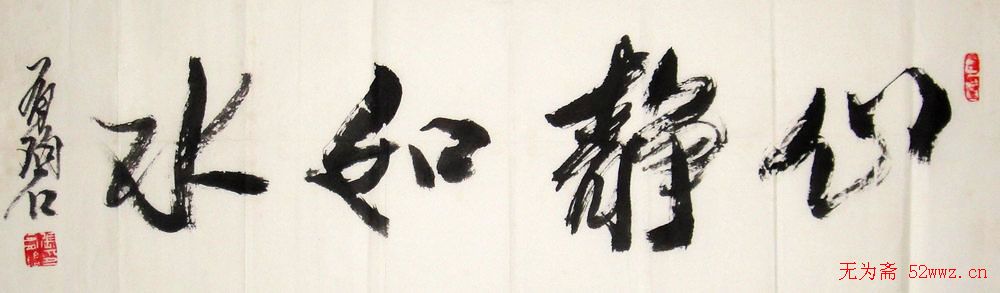 心静如水
无为斋 52wwz.cn